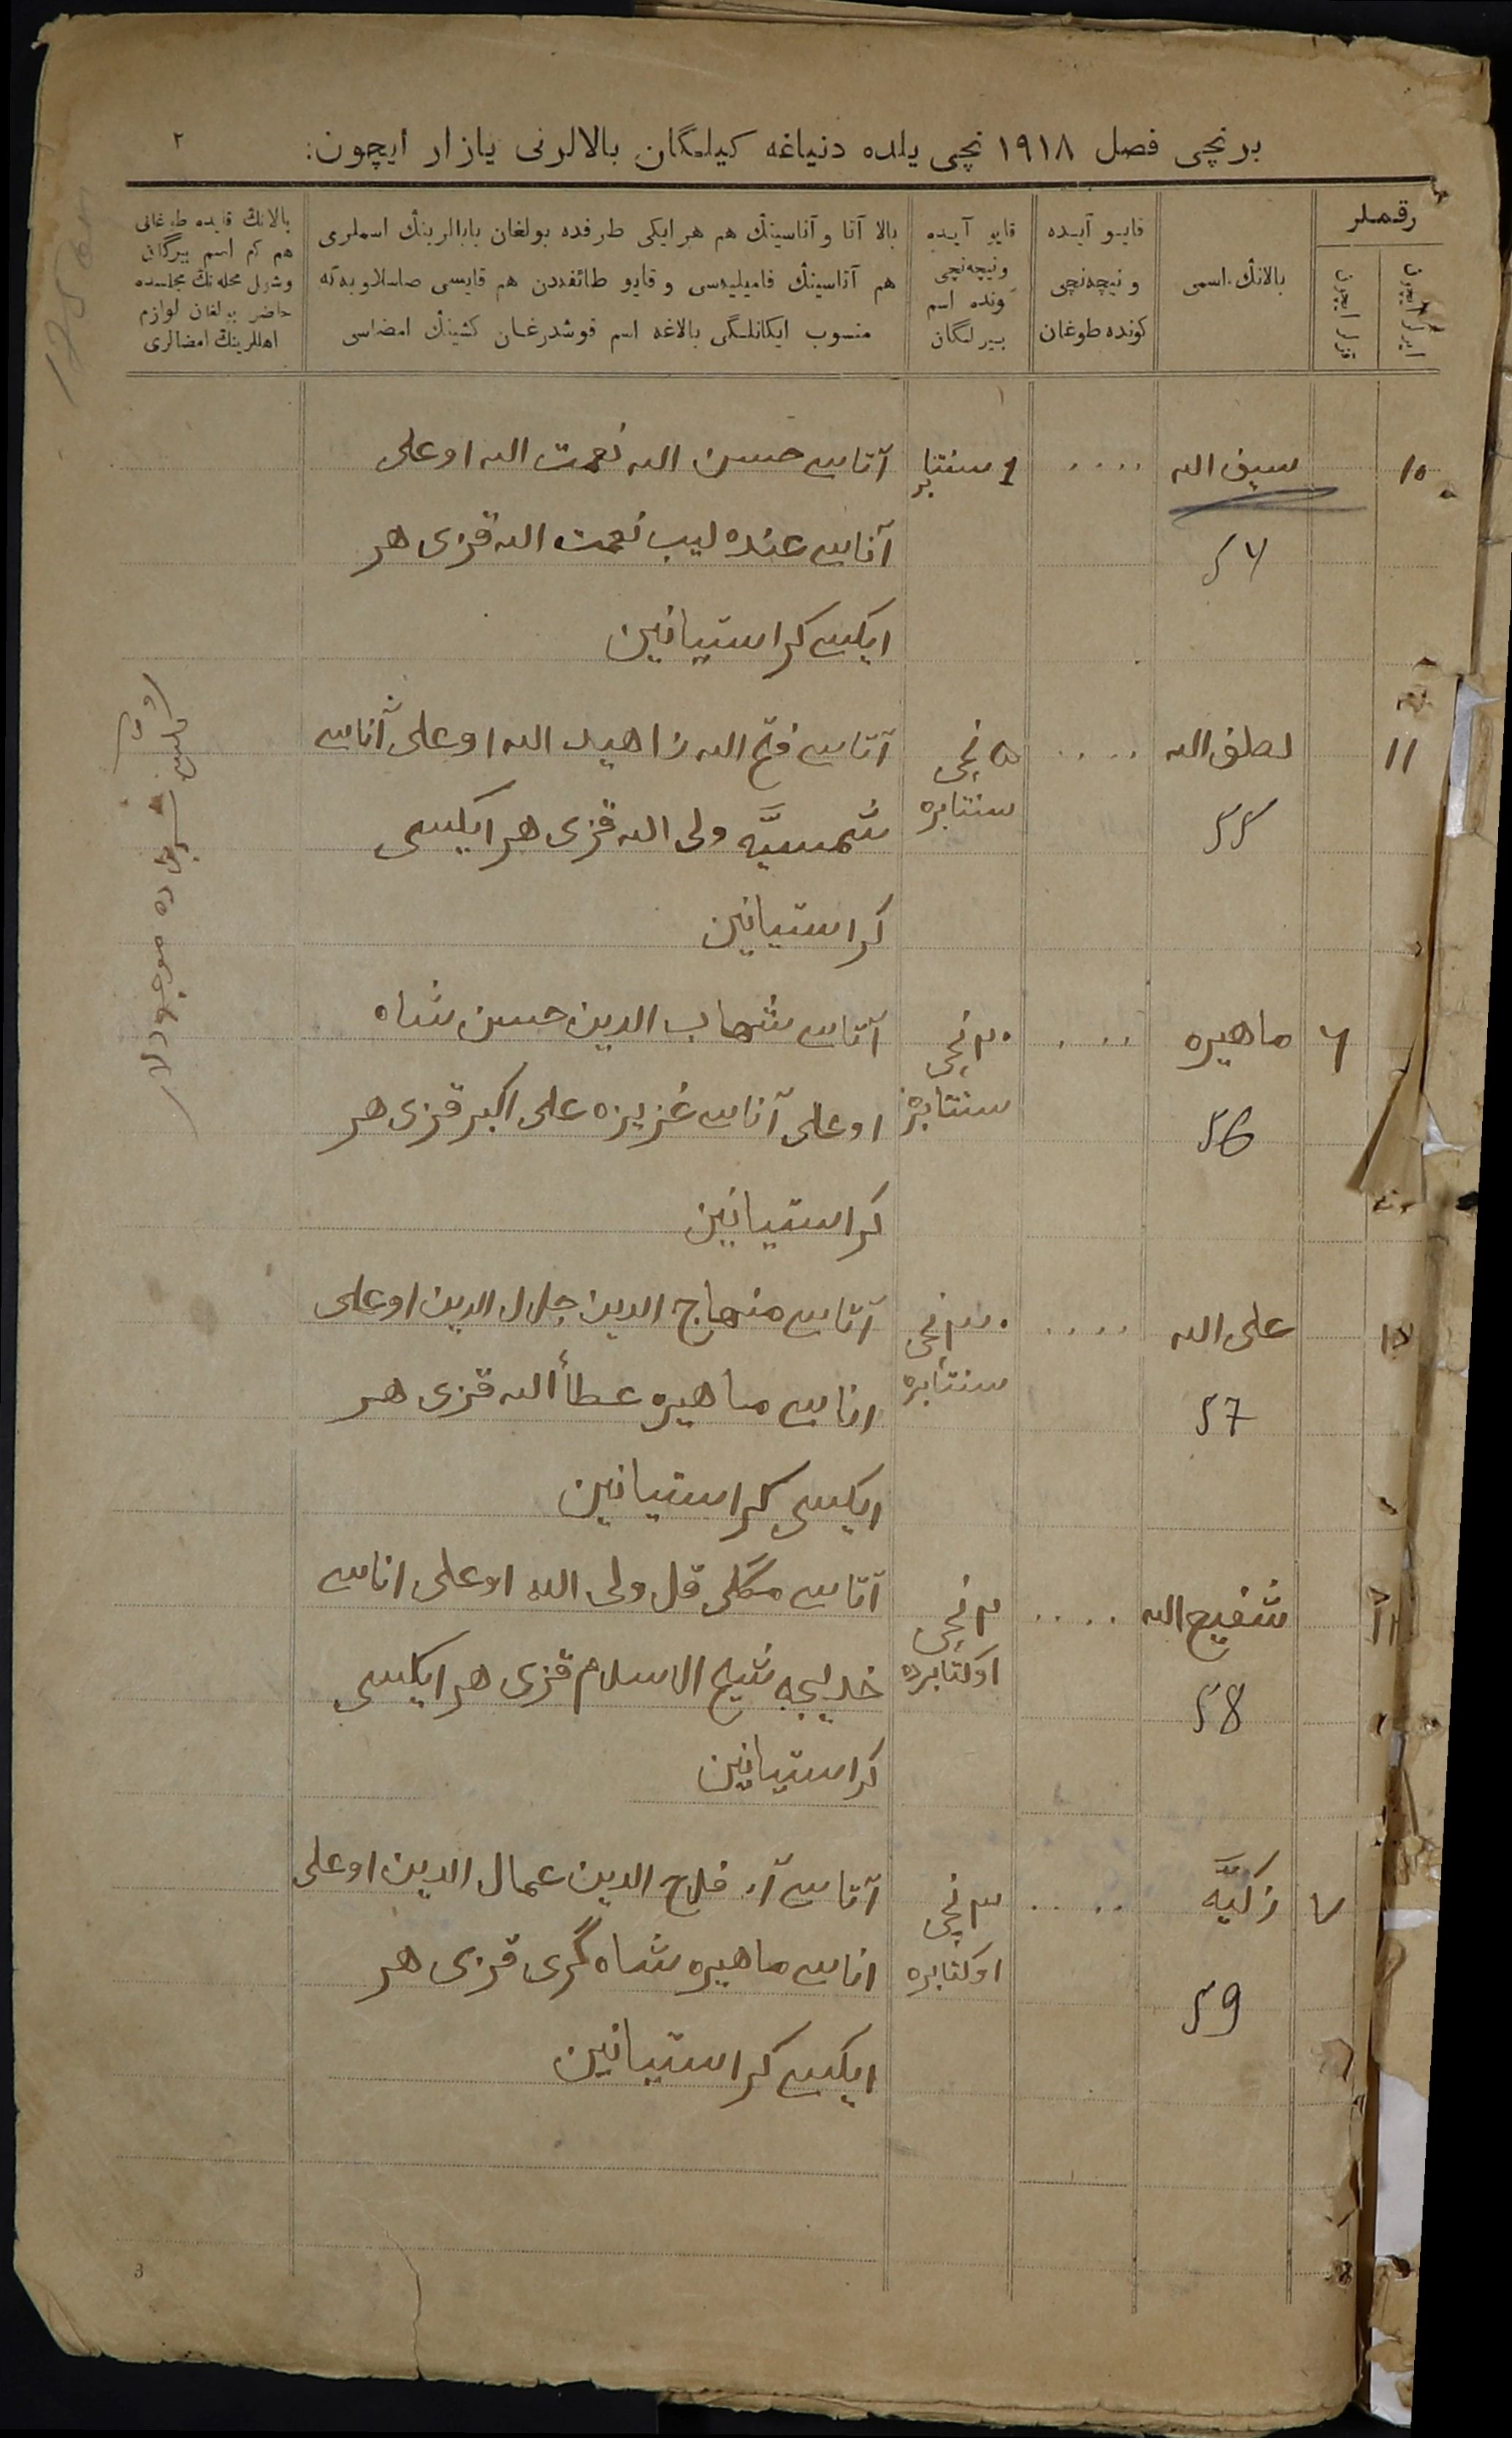 برنچی فصل ١٩١٨ نچی یلده دنیاغه کیلمگان بالالرنی یازار ایچون:
٢
رقملر
ایرلر ایچون
قزلر ایچون
بالانڭ اسمی
قایو آیده
و نیچه‌نچی
کونده طوغان
قایو آیده
و نیچه‌نچی
کونده اسم
بیرلگان
بالا آتا و آناسینڭ هم هر ایکی طرفده بولغان بابالرینڭ اسملری
هم آتاسینڭ فامیلیه‌سی و قایو طائفه‌دن هم قایسی صاسلاویه‌گه
منسوب ایکانلگی بالاغه اسم قوشدرغان کشینڭ امضاسی
بالانڭ قایده طوغانی
هم کم اسم بیرگانی
وشول محله‌نڭ مجلسده
حاضر بولغان لوازم
اهللرینڭ امضالری
10
سیف الله
54
1 سنتابر
آتاسی حسن الله نعمت الله اوغلی
آناسی عنده لیب نعمت الله قزی هر
ایکیسی کراستیانین
11
لطف الله
55
۵ نچی
سنتابره
آتاسی فتح الله زاهید الله اوغلی آناسی
شمسیّه ولی الله قزی هر ایکیسی
کراستیانین
٦
ماهیره
56
٢٠ نچی
سنتابره
آتاسی شهاب الدین حسن شاه
اوغلی آناسی عزیزه علی اکبر قزی هر
کراستیانین
علی الله
57
٣٠ نچی
سنتابره
آتاسی منهاج الدین جلال الدین اوغلی
اناسی ماهیره عطأ الله قزی هر
ایکیسی کراستیانین
شفیع الله
58
٢ نچی
اوکتابرده
آتاسی مگلی قل ولی الله اوغلی اناسی
خدیجه شیخ الاسلام قزی هر ایکیسی
کراستیانین
٧
زکیّه
59
٣ نچی
اوکتابره
آتاسی فلاح الدین عمال الدین اوغلی
اناسی ماهیره شاه گری قزی هر
ایکیسی کراستیانین
موجودلار